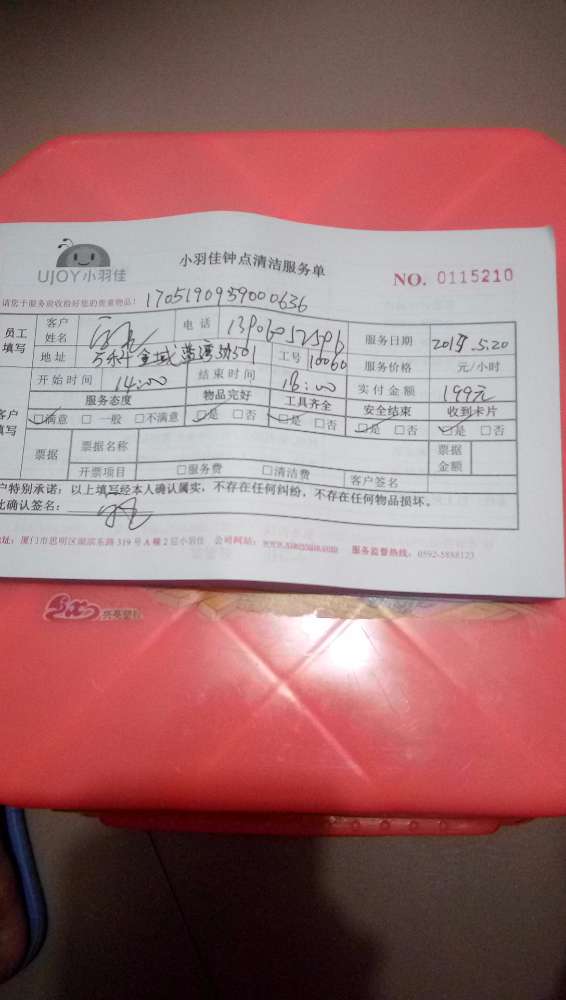 小羽佳钟点清洁服务单
UJOY小羽佳
NO. 0115210
请您于服务前收拾好您的贵重物品! 1705190959000636
员工填写 客户姓名 电话 13906052506 服务日期 2017.5.20
地址 万科金域蓝湾 501 工号 10060 服务价格 元/小时
开始时间 14:00 结束时间 18:00 实付金额 199元
客户填写 服务态度 物品完好 工具齐全 安全结束 收到卡片
☑满意 □一般 □不满意 ☑是 □否 ☑是 □否 ☑是 □否 ☑是 □否
票据 票据名称 票据金额
开票项目 □服务费 □清洁费 客户签名
户特别承诺:以上填写经本人确认属实,不存在任何纠纷,不存在任何物品损坏。
此确认签名:
地址:厦门市思明区湖滨东路319号A幢2层小羽佳 公司网站: 服务监督热线:0592-5888123